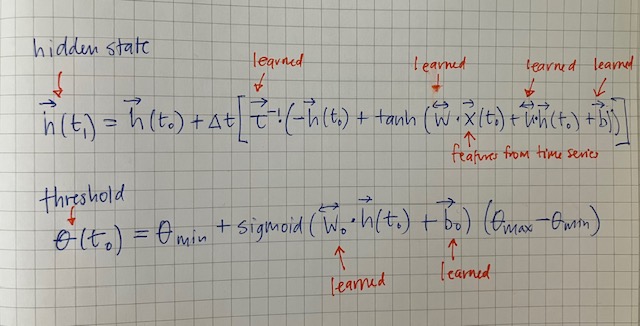 hidden state
learned learned learned learned
h⃗(t₁) = h⃗(t₀) + Δt[τ⃗⁻¹·(-h⃗(t₀) + tanh(w⃡·x⃗(t₀) + u⃡·h⃗(t₀) + b⃗))]
features from time series
threshold
θ(t₀) = θmin + sigmoid(w⃡₀·h⃗(t₀) + b⃗₀)(θmax-θmin)
learned learned